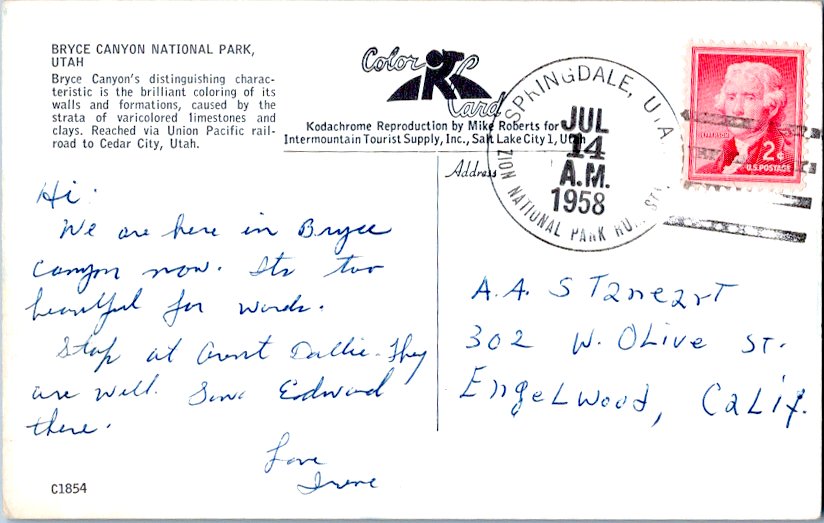 BRYCE CANYON NATIONAL PARK,
UTAH
Bryce Canyon's distinguishing charac-
teristic is the brilliant coloring of its
walls and formations, caused by the
strata of varicolored limestones and
clays. Reached via Union Pacific rail-
road to Cedar City, Utah.
Color
Card
Kodachrome Reproduction by Mike Roberts for
Intermountain Tourist Supply, Inc., Salt Lake City 1, Utah
Address
SPRINGDALE, UTA
JUL
14
A.M.
1958
ZION NATIONAL PARK RU. STA
JEFFERSON
2¢
U.S. POSTAGE
Hi.
We are here in Bryce
Canyon now. Its too
beautiful for words.
Stop at Aunt Dollie. They
are well. Edward
there.
Love
Irene
A.A. STANEART
302 W. OLive ST.
EngeLwood, CaLif.
C1854